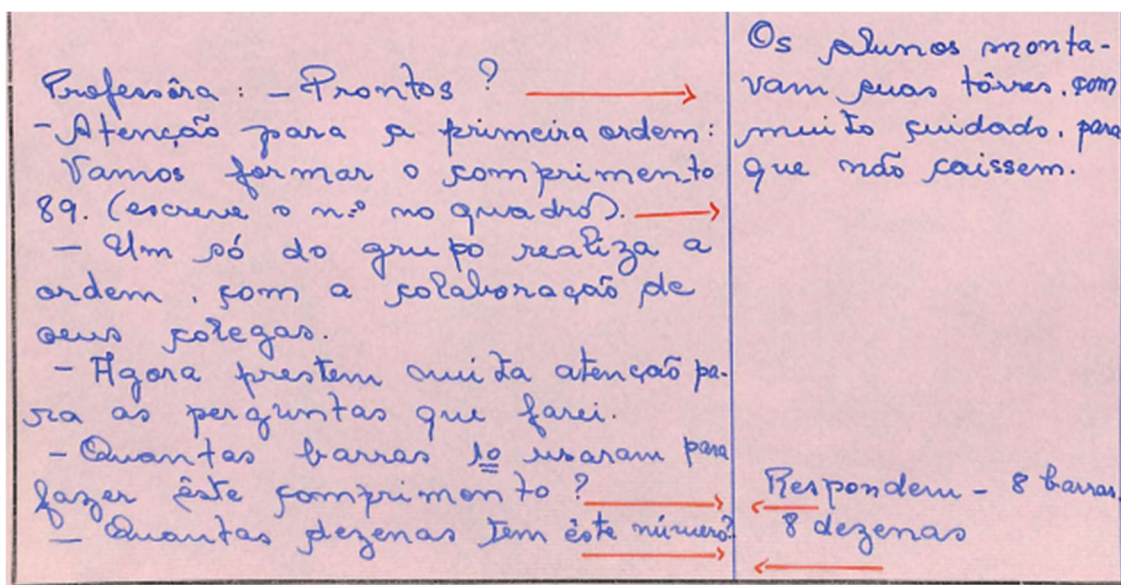 Professôra: - Prontos?
- Atenção para a primeira ordem:
Vamos formar o comprimento
89. (escreve o n.º no quadro).
- Um só do grupo realiza a
ordem, com a colaboração de
seus colegas.
- Agora prestem muita atenção pa-
ra as perguntas que farei.
- Quantas barras 10 usaram para
fazer êste comprimento?
- Quantas dezenas tem êste número?
Os alunos monta-
vam suas tôrres, com
muito cuidado, para
que não caissem.
Respondem - 8 barras,
8 dezenas